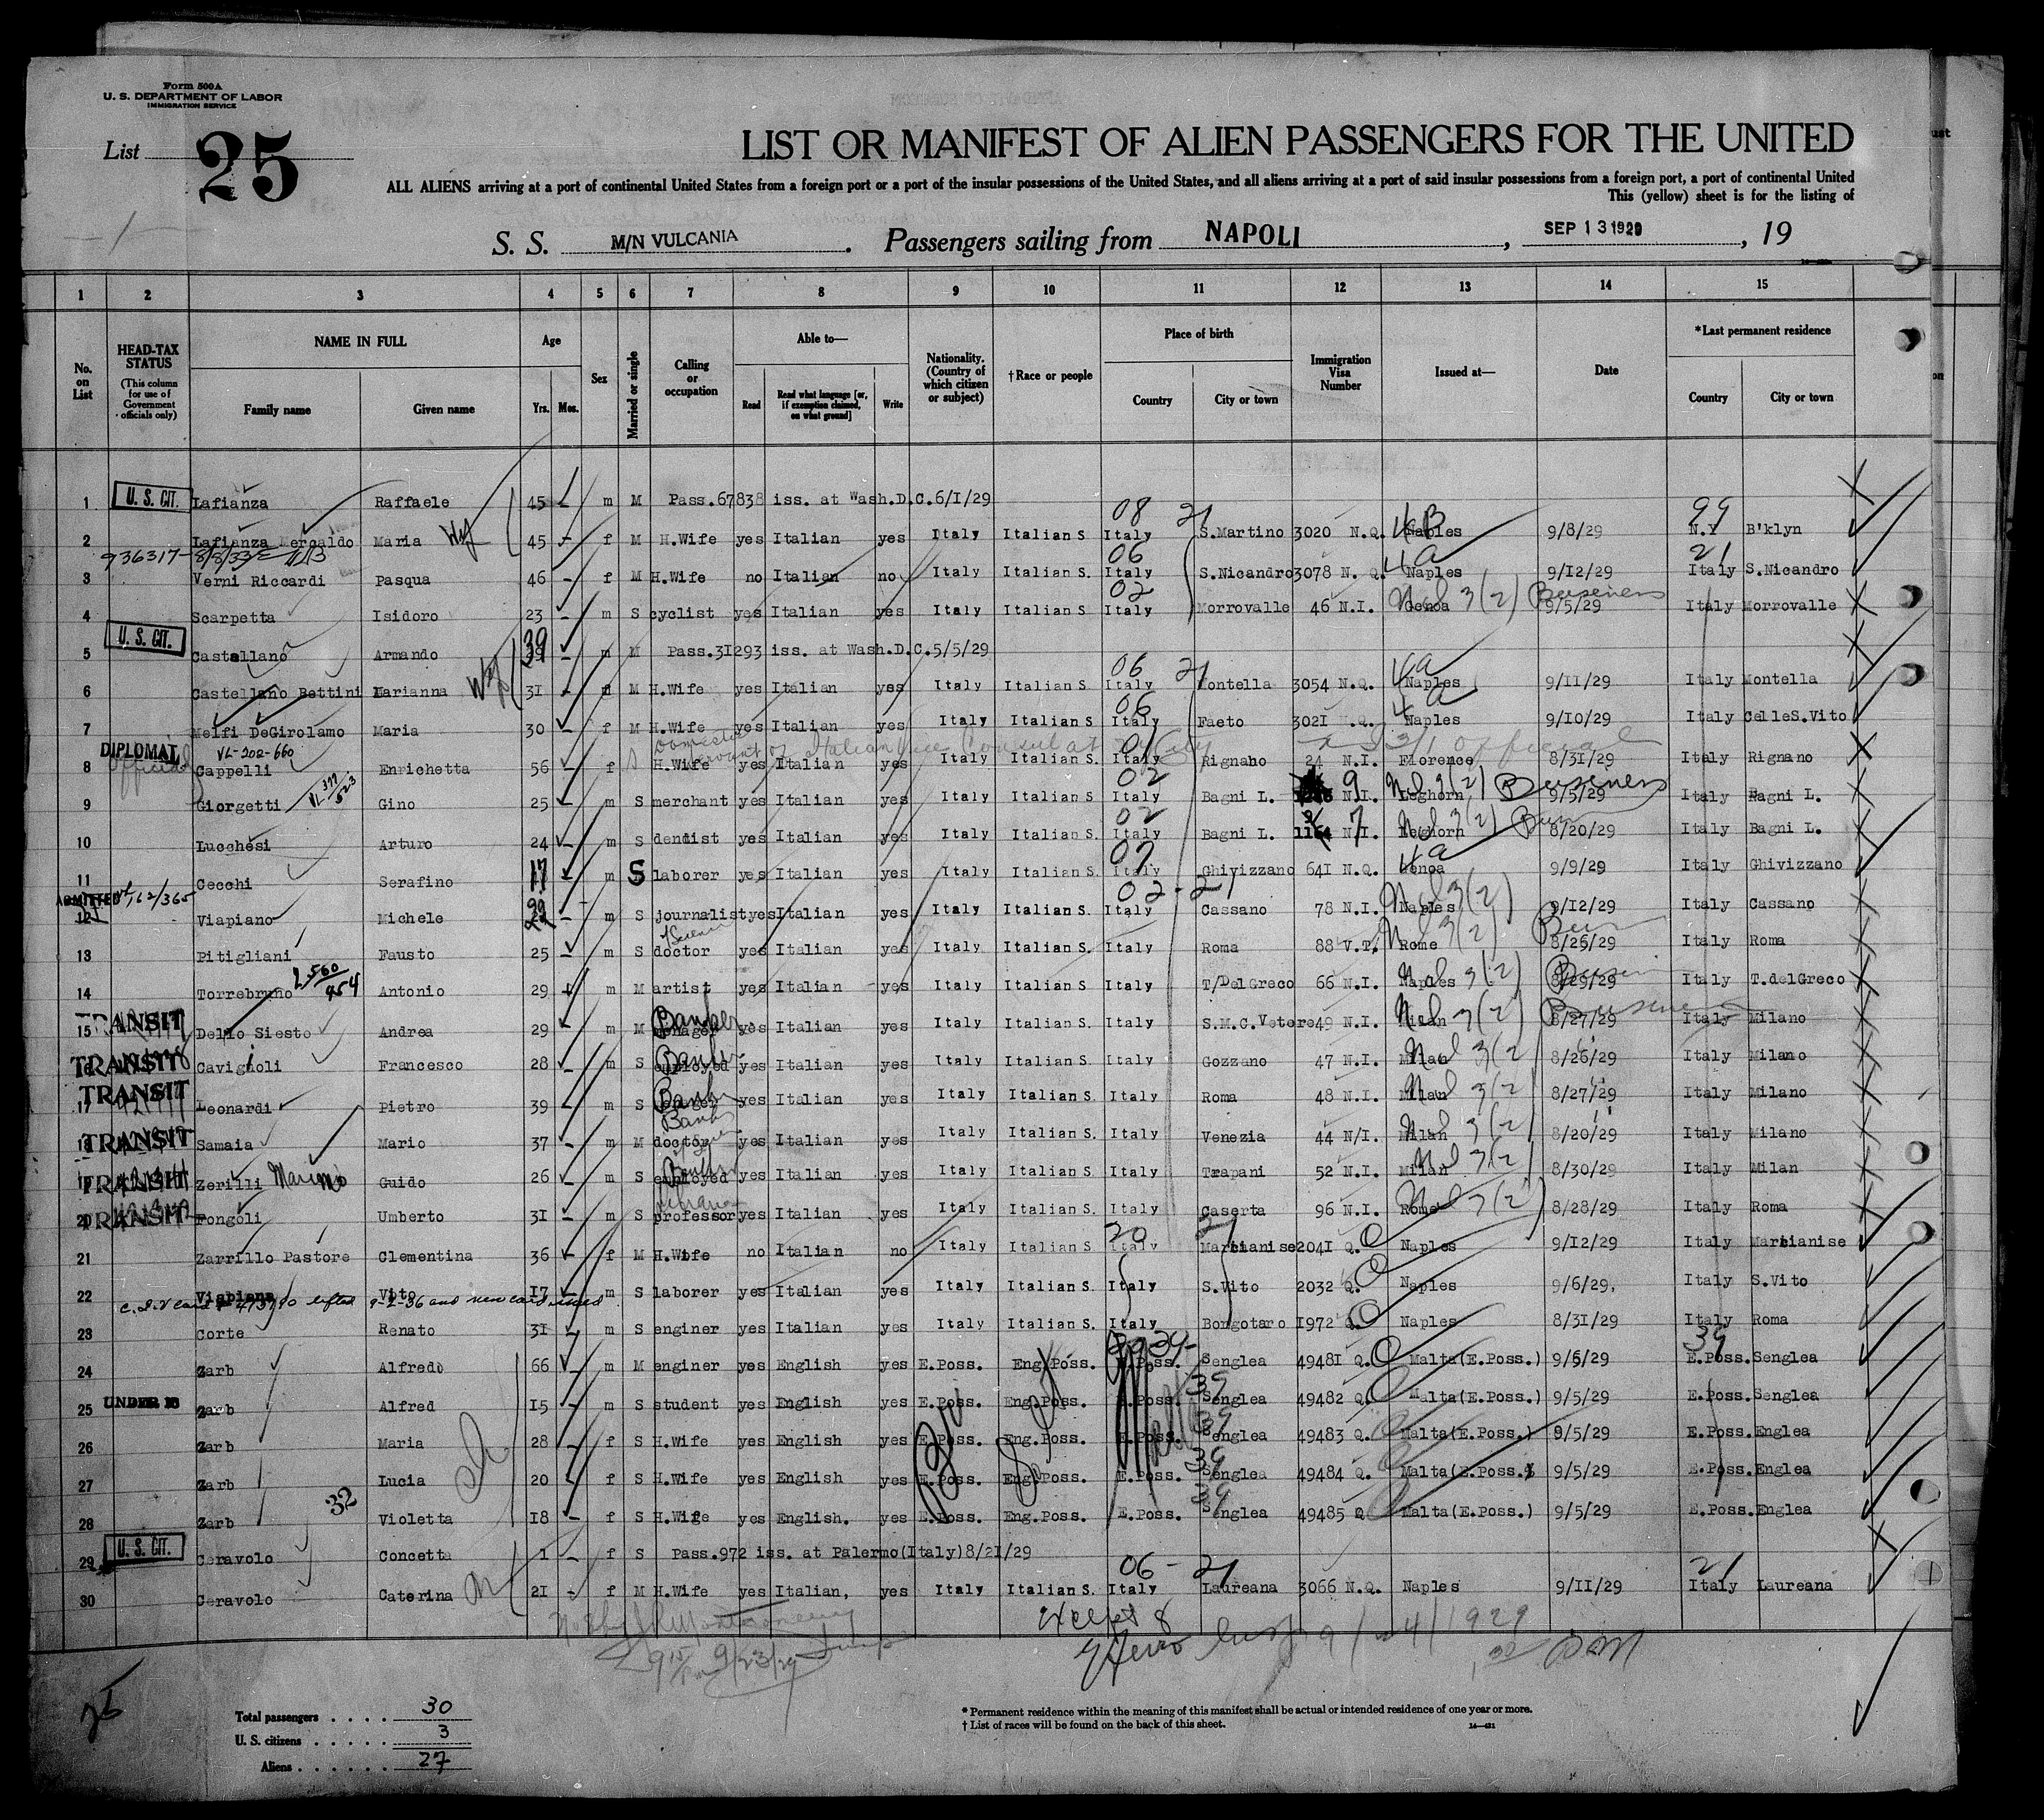 Form 500A
U. S. DEPARTMENT OF LABOR
IMMIGRATION SERVICE
List 25
LIST OR MANIFEST OF ALIEN PASSENGERS FOR THE UNITED
ALL ALIENS arriving at a port of continental United States from a foreign port or a port of the insular possessions of the United States, and all aliens arriving at a port of said insular possessions from a foreign port, a port of continental United
This (yellow) sheet is for the listing of
S. S. M/N VULCANIA. Passengers sailing from NAPOLI, SEP 13 1929, 19
1 2 3 4 5 6 7 8 9 10 11 12 13 14 15
No. on List
HEAD-TAX STATUS
(This column for use of Government officials only)
NAME IN FULL
Family name Given name
Age
Yrs. Mos.
Sex
Married or single
Calling or occupation
Able to—
Read
Read what language [or, if exemption claimed, on what ground]
Write
Nationality. (Country of which citizen or subject)
†Race or people
Place of birth
Country City or town
Immigration Visa Number
Issued at—
Date
*Last permanent residence
Country City or town
1 U. S. CIT. Lafianza Raffaele 45 m M Pass.67838 iss. at Wash.D.C.6/1/29
08 21 4B 99
2 Lafianza Mercaldo Maria 45 f M H.Wife yes Italian yes Italy Italian S Italy S.Martino 3020 N.Q. Naples 9/8/29 N.Y B'klyn
936317- 06 4a 21
3 Verni Riccardi Pasqua 46 f M H.Wife no Italian no Italy Italian S. Italy S.Nicandro 3078 N. Q. Naples 9/12/29 Italy S.Nicandro
02
4 Scarpetta Isidoro 23 m S cyclist yes Italian yes Italy Italian S Italy Morrovalle 46 N.I. Genoa 3(2) 9/5/29 Italy Morrovalle
5 U. S. CIT. Castellano Armando 39 m M Pass.31293 iss. at Wash.D.C.5/5/29
06 21 4a
6 Castellano Bettini Marianna 31 M H.Wife yes Italian yes Italy Italian S. Italy Montella 3054 N.Q. Naples 9/11/29 Italy Montella
06 4a
7 Melfi DeGirolamo Maria 30 f M H.Wife yes Italian yes Italy Italian S Italy Faeto 3021 N.Q. Naples 9/10/29 Italy CelleS.Vito
DIPLOMAT VL-202-660
official
8 Cappelli Enrichetta 56 f S H.Wife yes Italian yes Italy Italian S. Italy Rignano 24 N.I. Florence 8/31/29 Italy Rignano
02
9 Giorgetti Gino 25 m S merchant yes Italian yes Italy Italian S Italy Bagni L. 9 N.I. Leghorn 3(2) Business 9/5/29 Italy Bagni L.
02
10 Lucchesi Arturo 24 m S dendist yes Italian yes Italy Italian S. Italy Bagni L. 7 N.I. Leghorn 3(2) 8/20/29 Italy Bagni L.
07 4a
11 Cecchi Serafino 17 m S laborer yes Italian yes Italy Italian S. Italy Ghivizzano 641 N.Q. Genoa 9/9/29 Italy Ghivizzano
ADMITTED 02-21
12 Viapiano Michele 22 m S journalist yes Italian yes Italy Italian S. Italy Cassano 78 N.I. Naples 3(2) 9/12/29 Italy Cassano
13 Pitigliani Fausto 25 m S doctor yes Italian yes Italy Italian S. Italy Roma 88 V.T. Rome 3(2) 8/26/29 Italy Roma
14 Torrebruno Antonio 29 m M artist yes Italian yes Italy Italian S Italy T/DelGreco 66 N.I. Naples 3(2) 8/29/29 Italy T.delGreco
15 TRANSIT Dello Siesto Andrea 29 m M Banker yes Italian yes Italy Italian S Italy S.M.C.Vetere 49 N.I. Milan 3(2) 8/27/29 Italy Milano
16 TRANSIT Cavignoli Francesco 28 m S employed yes Italian yes Italy Italian S. Italy Gozzano 47 N.I. Milan 3(2) 8/26/29 Italy Milano
17 TRANSIT Leonardi Pietro 39 m S yes Italian yes Italy Italian S. Italy Roma 48 N.I. Milan 3(2) 8/27/29 Italy Milano
18 TRANSIT Samaia Mario 37 m M doctor yes Italian yes Italy Italian S. Italy Venezia 44 N/I. Milan 3(2) 8/20/29 Italy Milano
19 TRANSIT Zerilli Marimo Guido 26 m S employed yes Italian yes Italy Italian S Italy Trapani 52 N.I. Milan 3(2) 8/30/29 Italy Milan
20 TRANSIT Fongoli Umberto 31 m S professor yes Italian yes Italy Italian S. Italy Caserta 96 N.I. Rome 3(2) 8/28/29 Italy Roma
20 21
21 Zarrillo Pastore Clementina 36 f M H.Wife no Italian no Italy Italian S Italy Marcianise 2041 Q. Naples 9/12/29 Italy Marcianise
22 Viapiana Vito 17 m S laborer yes Italian yes Italy Italian S. Italy S.Vito 2032 Q. Naples 9/6/29. Italy S.Vito
lifted 9-2-36 and new card issued
23 Corte Renato 31 m S enginer yes Italian yes Italy Italian S. Italy Bongotaro 1972 Q. Naples 8/31/29 Italy Roma
39
24 Zarb Alfredo 66 m M enginer yes English yes E.Poss. Eng.Poss. E.Poss. Senglea 49481 Q. Malta(E.Poss.) 9/5/29 E.Poss. Senglea
25 UNDER 16 Zarb Alfred 15 m S student yes English yes E.Poss. Eng.Poss. E.Poss. Senglea 49482 Q. Malta(E.Poss.) 9/5/29 E.Poss. Senglea
39
26 Zarb Maria 28 f S H.Wife yes English yes E.Poss. Eng.Poss. E.Poss. Senglea 49483 Q. Malta(E.Poss.) 9/5/29 E.Poss. Englea
39
27 Zarb Lucia 20 f S H.Wife yes English yes E.Poss. Eng.Poss. E.Poss. Senglea 49484 Q. Malta(E.Poss.) 9/5/29 E.Poss. Englea
32 39
28 Zarb Violetta 18 f S H.Wife yes English. yes E.Poss. Eng.Poss. E.Poss. Senglea 49485 Q Malta(E.Poss.) 9/5/29 E.Poss. Englea
29 U. S. CIT. Ceravolo Concetta 1 f S Pass.972 iss. at Palermo(Italy)8/21/29
06 - 21 21
30 Ceravolo Caterina 21 f M H.Wife yes Italian, yes Italy Italian S. Italy Laureana 3066 N.Q. Naples 9/11/29 Italy Laureana
Except 8
9/23/29
Total passengers . . . . 30
U. S. citizens . . . . . 3
Aliens . . . . . . 27
* Permanent residence within the meaning of this manifest shall be actual or intended residence of one year or more.
† List of races will be found on the back of this sheet.